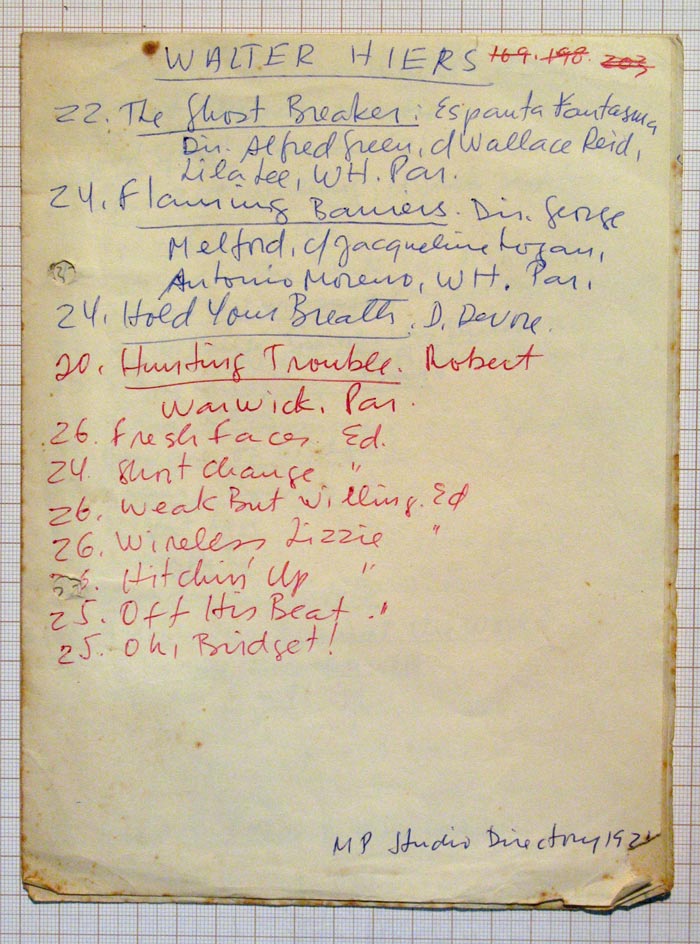 WALTER HIERS 169. 198. 203
22. The Ghost Breaker: Espanta Fantasma
Dir. Alfred Green, c/ Wallace Reid,
Lila Lee, WH. Par.
24. Flaming Barriers. Dir. George
Melford, c/ Jacqueline Logan,
Antonio Moreno, WH. Par.
24. Hold Your Breath. D. Devore.
20. Hunting Trouble. Robert
Warwick. Par.
26. Fresh Faces. Ed.
24. Short Change "
26. Weak But Willing. Ed
26. Wireless Lizzie "
Hitchin' Up "
25. Off His Beat. "
25. Oh, Bridget!
MP Studio Directory